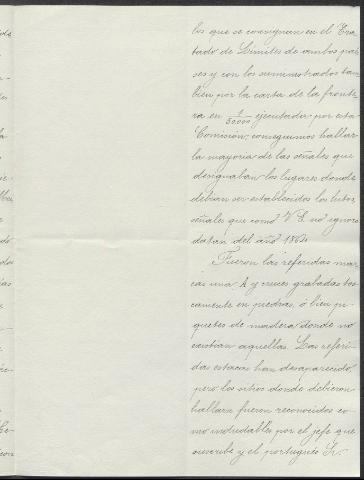 los que se consignan en el Tra-
tado de Límites de ambos paí-
ses y con los suministrados tam-
bien por la carta de la fronte-
ra en 1/50000 ejecutada por esta
Comisión, conseguimos hallar
la mayoria de las señales que
designaban los lugares donde
debían ser establecidos los hitos,
señales que como V. E. no ignora
datan del año 1864.
Fueron las referidas mar-
cas una A y cruces grabadas tos-
camente en piedras, ó bien pi-
quetes de madera donde no
existian aquellas. Las referi-
das estacas han desaparecido,
pero los sitios donde debieron
hallarse fueron reconocidos co-
mo indudables por el jefe que
suscribe y el portugués Sr.